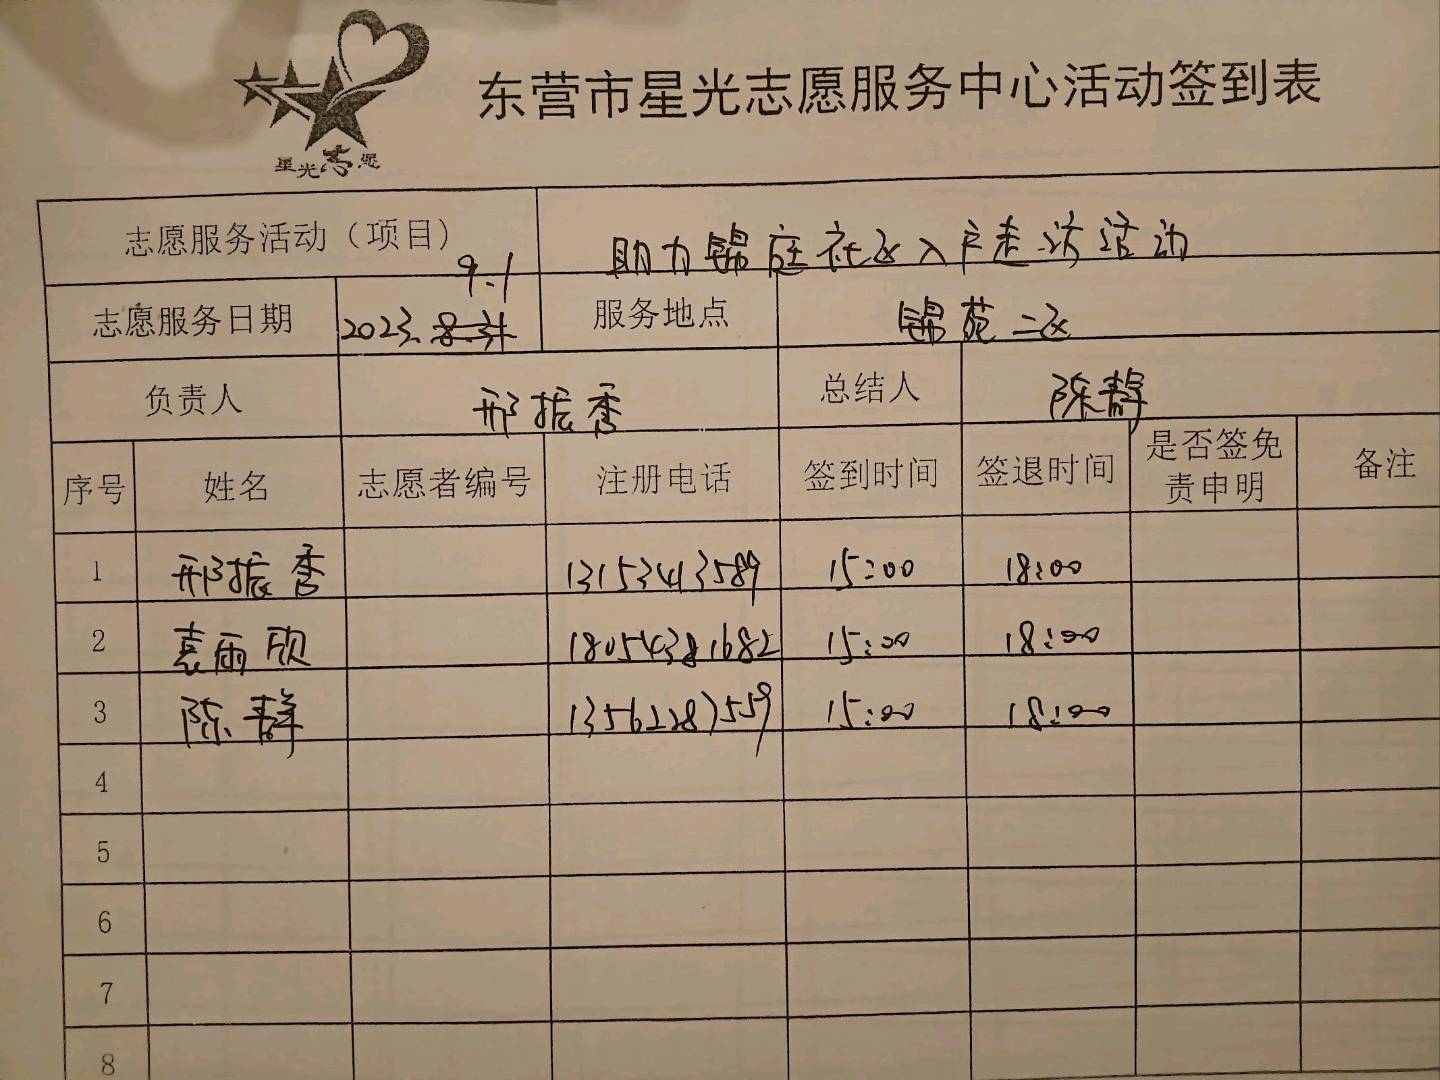 东营市星光志愿服务中心活动签到表
星光志愿
志愿服务活动（项目） 助力锦庭社区入户走访活动
9.1
志愿服务日期 2023.8.31 服务地点 锦苑二区
负责人 邢振香 总结人 陈静
序号 姓名 志愿者编号 注册电话 签到时间 签退时间 是否签免责申明 备注
1 邢振香 13153413589 15:00 18:00
2 雨欣 18054381682 15:00 18:00
3 陈静 13562287559 15:00 18:00
4
5
6
7
8